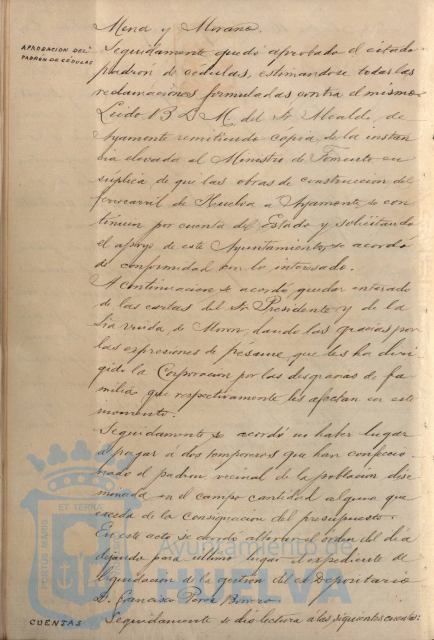 Mena y Morano.
APROBACION DEL
PADRON DE CÉDULAS
Seguidamente quedó aprobado el citado
padron de cédulas, estimandose todas las
reclamaciones formuladas contra el mismo.
Leido B L M. del Sr Alcalde de
Ayamonte remitiendo cópia de la instan
cia elevada al Ministro de Fomento en
súplica de que las obras de construccion del
ferrocarril de Huelva a Ayamonte, se con
tinuen por cuenta del Estado y solicitando
el apoyo de este Ayuntamiento, se acordó
de conformidad con lo interesado.
A continuacion se acordó quedar enterado
de las cartas del Sr Presidente y de la
Sra viuda de Moron, dando las gracias por
las expresiones de pésame que les ha diri
gido la Corporacion por las desgracias de fa
milia que respectivamente les afectan en este
momento.
Seguidamente se acordó no haber lugar
a pagar á dos temporeros que han confeccio
nado el padron vecinal de la poblacion dise
minada en el campo cantidad alguna que
exceda de la consignacion del presupuesto.
En este acto se acordó alterar el orden del dia
dejando para último lugar el expediente de
liquidacion de la gestion del Depositario
D. Francisco Perez
CUENTAS
Seguidamente se dió lectura á las siguientes cuentas:
PORTUS MARIS
ET TERRÆ
Ayuntamiento de
HUELVA